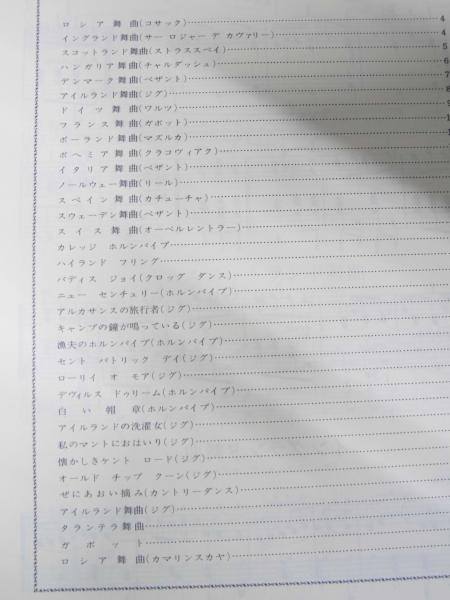 ロシア舞曲(コサック)……4
イングランド舞曲(サー ロジャー デ カヴァリー)……4
スコットランド舞曲(ストラススペイ)……5
ハンガリア舞曲(チャルダッシュ)……6
デンマーク舞曲(ペザント)……7
アイルランド舞曲(ジグ)……8
ドイツ舞曲(ワルツ)……9
フランス舞曲(ガボット)……1
ポーランド舞曲(マズルカ)……1
ボヘミア舞曲(クラコヴィアク)……
イタリア舞曲(ペザント)……
ノールウェー舞曲(リール)……
スペイン舞曲(カチューチャ)……
スウェーデン舞曲(ペザント)……
スイス舞曲(オーベルレントラー)……
カレッジ ホルンパイプ……
ハイランド フリング……
パディス ジョイ(クロッグ ダンス)……
ニュー センチュリー(ホルンパイプ)……
アルカサンスの旅行者(ジグ)……
キャンプの鐘が鳴っている(ジグ)……
漁夫のホルンパイプ(ホルンパイプ)……
セント パトリック デイ(ジグ)……
ローリイ オ モア(ジグ)……
デヴィルス ドゥリーム(ホルンパイプ)……
白い帽章(ホルンパイプ)……
アイルランドの洗濯女(ジグ)……
私のマントにおはいり(ジグ)……
懐かしきケント ロード(ジグ)……
オールド チップ クーン(ジグ)……
ぜにあおい摘み(カントリーダンス)……
アイルランド舞曲(ジグ)……
タランテラ舞曲……
ガボット……
ロシア舞曲(カマリンスカヤ)……